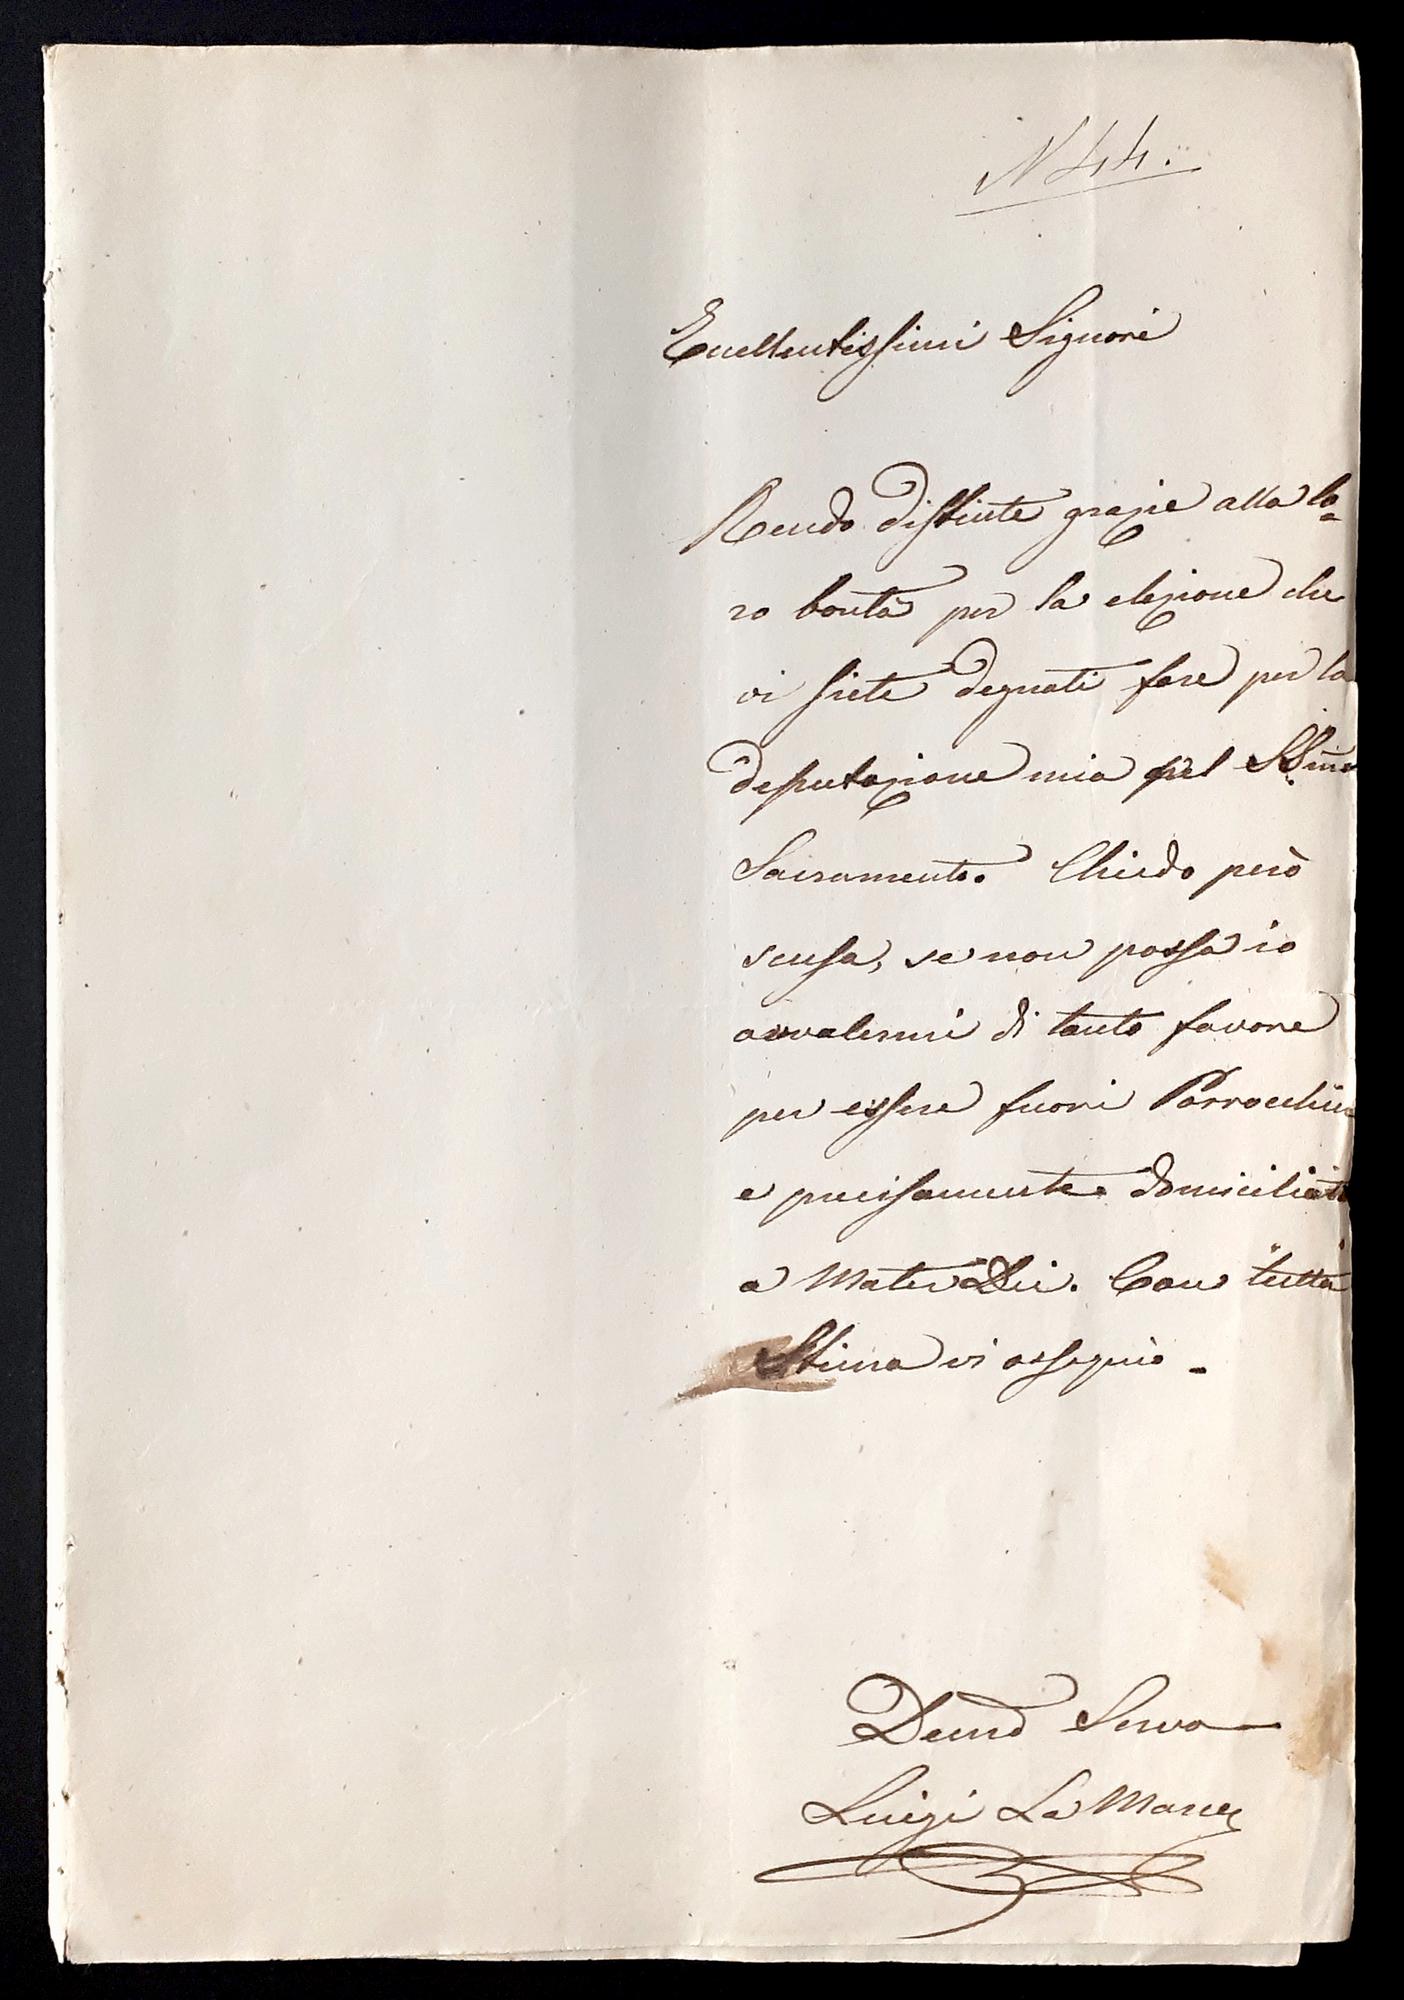 N 44.
Eccellentissimi Signori
Rendo distinte grazie alla lo=
ro bontà per la elezione che
vi siete degnati fare per la
deputazione mia pel SSmo
Sacramento. Chiedo però
scusa, se non possa io
avvalermi di tanto favore
per essere fuori Parrocchia
e precisamente domiciliato
a Mater Dei. Con tutta
Stima vi ossequio -
Servo
Luigi La